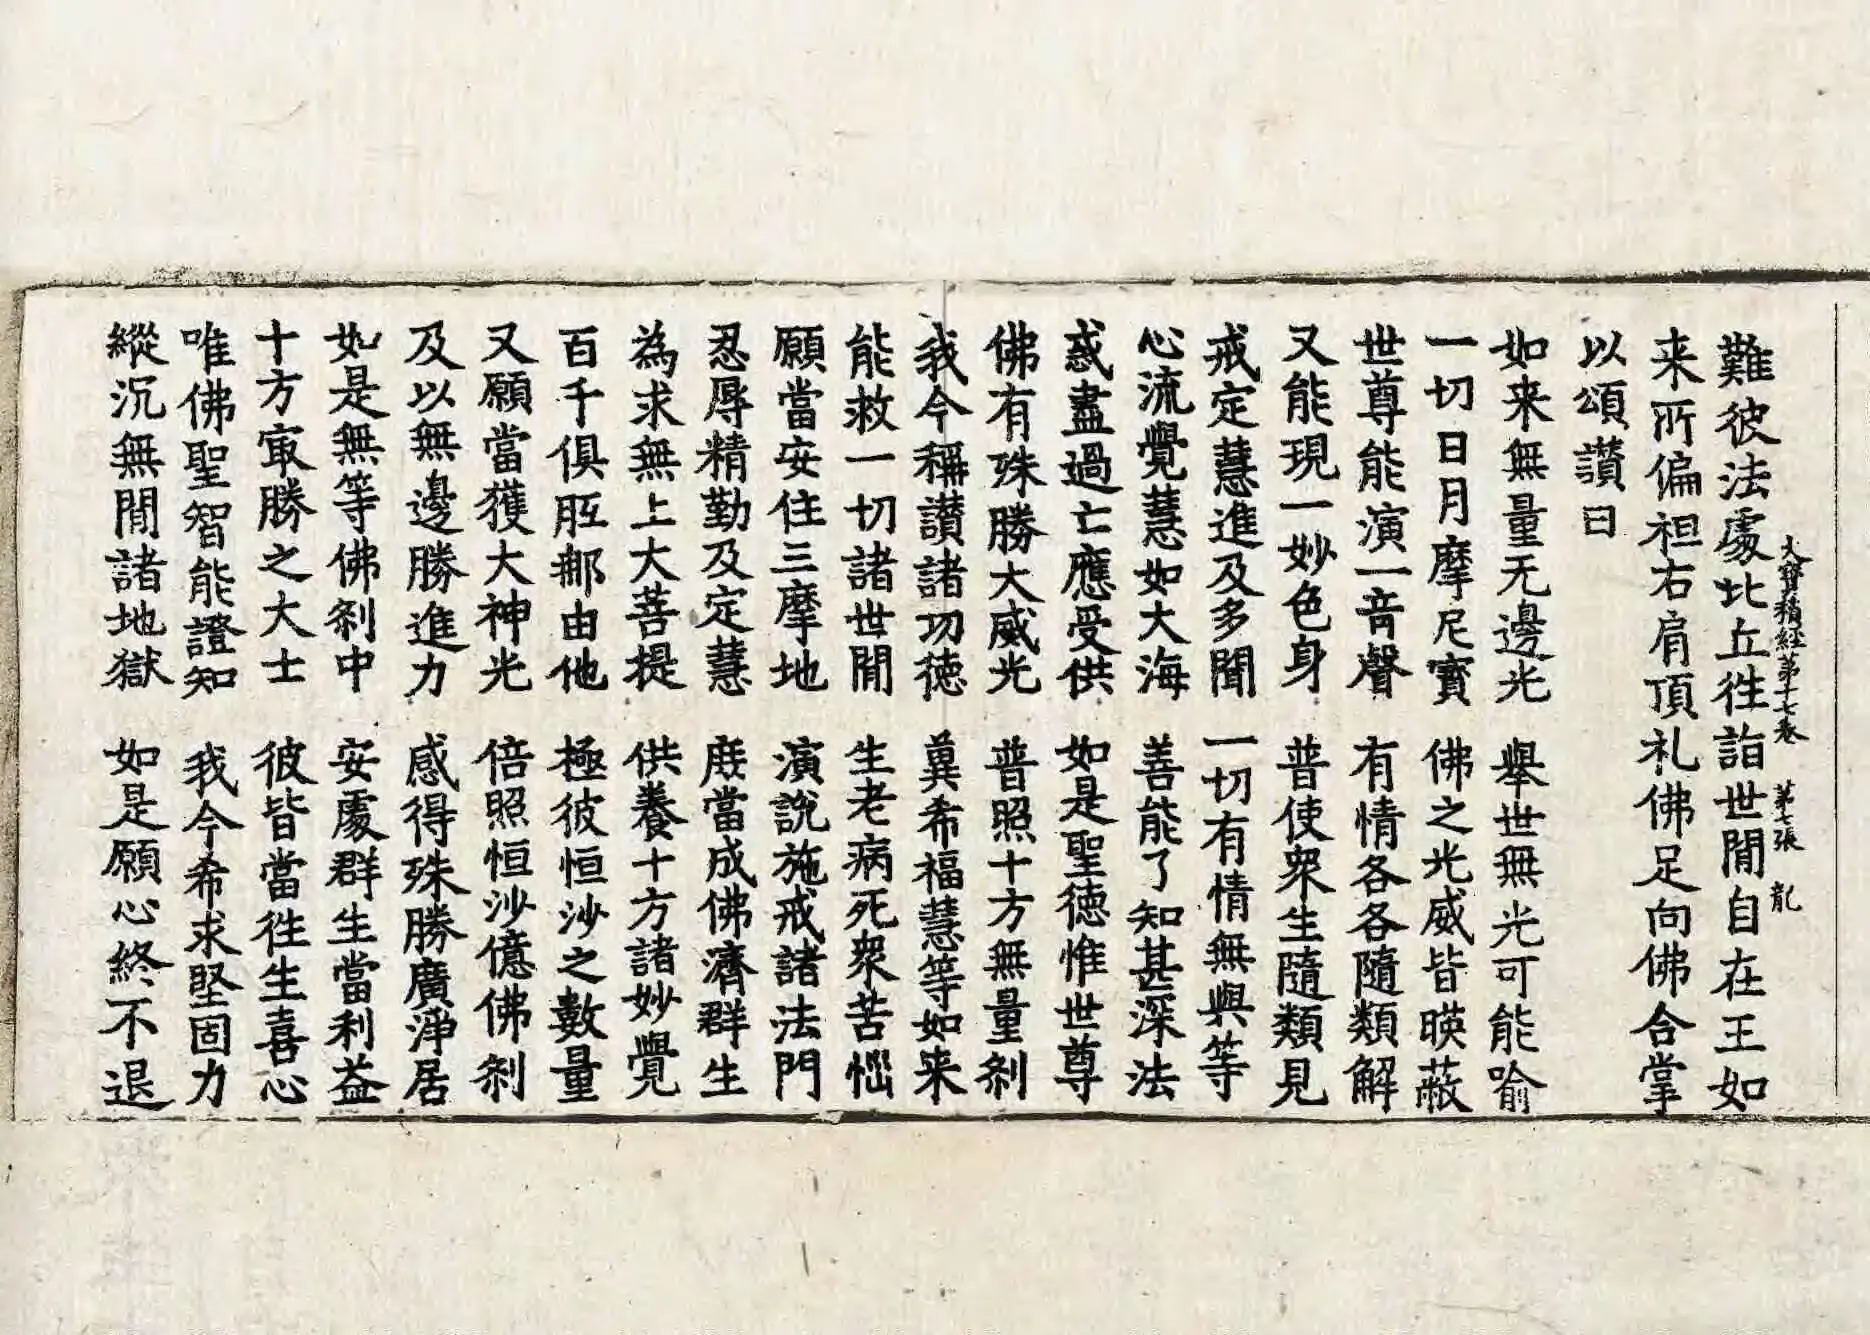 大寶積經第十七卷 第七張 龍
難彼法處比丘徃詣世間自在王如
来所偏袒右肩頂礼佛足向佛合掌
以頌讃曰
如来無量无邊光 舉世無光可能喻
一切日月摩尼寶 佛之光威皆暎蔽
世尊能演一音聲 有情各各隨類解
又能現一妙色身 普使衆生隨類見
戒定慧進及多聞 一切有情無與等
心流覺慧如大海 善能了知甚深法
惑盡過亡應受供 如是聖德惟世尊
佛有殊勝大威光 普照十方無量剎
我今稱讃諸功德 兾希福慧等如来
能救一切諸世間 生老病死衆苦惱
願當安住三摩地 演說施戒諸法門
忍辱精勤及定慧 庻當成佛濟群生
為求無上大菩提 供養十方諸妙覺
百千俱胝那由他 極彼恒沙之數量
又願當獲大神光 倍照恒沙億佛剎
及以無邊勝進力 感得殊勝廣淨居
如是無等佛剎中 安處群生當利益
十方㝡勝之大士 彼皆當徃生喜心
唯佛聖智能證知 我今希求堅固力
縱沉無間諸地獄 如是願心終不退